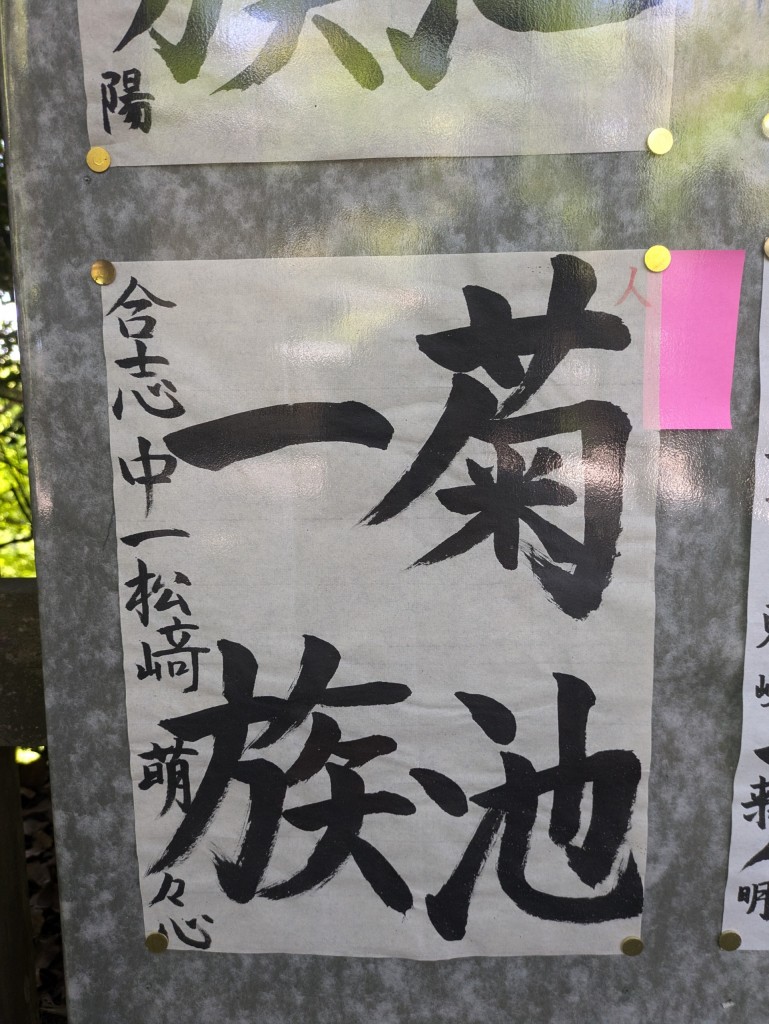 族 池
陽
人
菊池
一族
合志中一松﨑萌々心
明